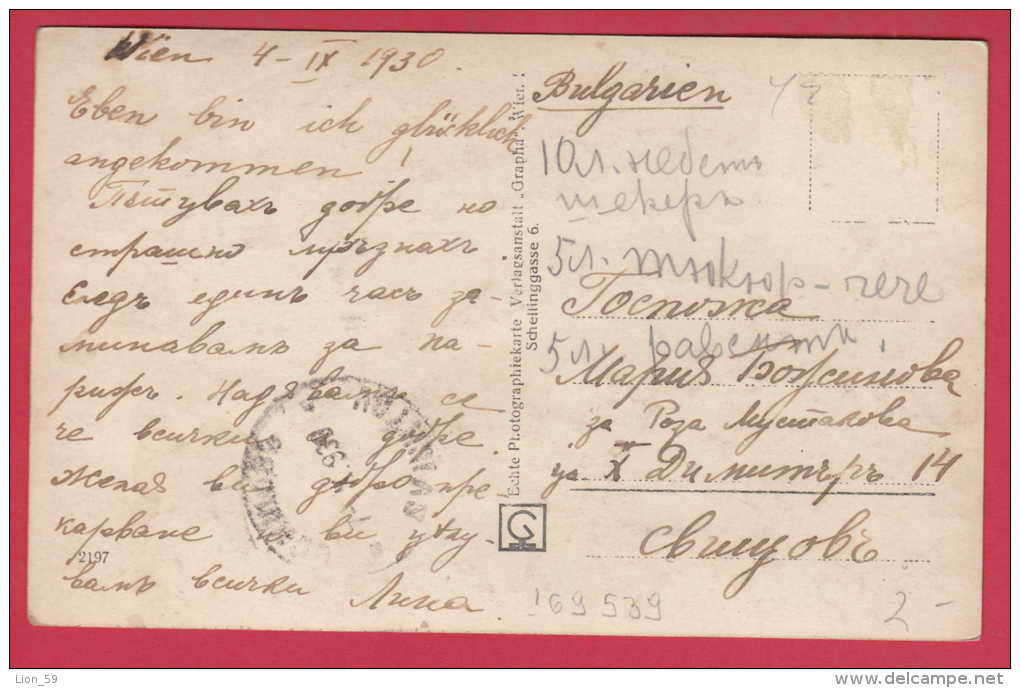 Wien 4-IX 1930.
Eben bin ich glücklich
angekommen!
Пътувахъ добре но
страшно мръзнахъ
Следъ единъ часъ за-
минавамъ за Па-
рижъ. Надявамъ се
че всички добре.
Желая ви добро пре
карване и ви цѣлу-
вамъ всички Лина
2197
Echte Photographiekarte Verlagsanstalt „Grapha“, Wien I
Schellinggasse 6.
Bulgarien
10 л. небетъ
шекеръ
5 л. тюкюр-чече
Госпожа
5 л. равентъ.
Мария Божинова
за Роза Мустакова
ул. Х Димитъръ 14
Свищовъ
1930
169539
2-
Lion_59
www.delcampe.net